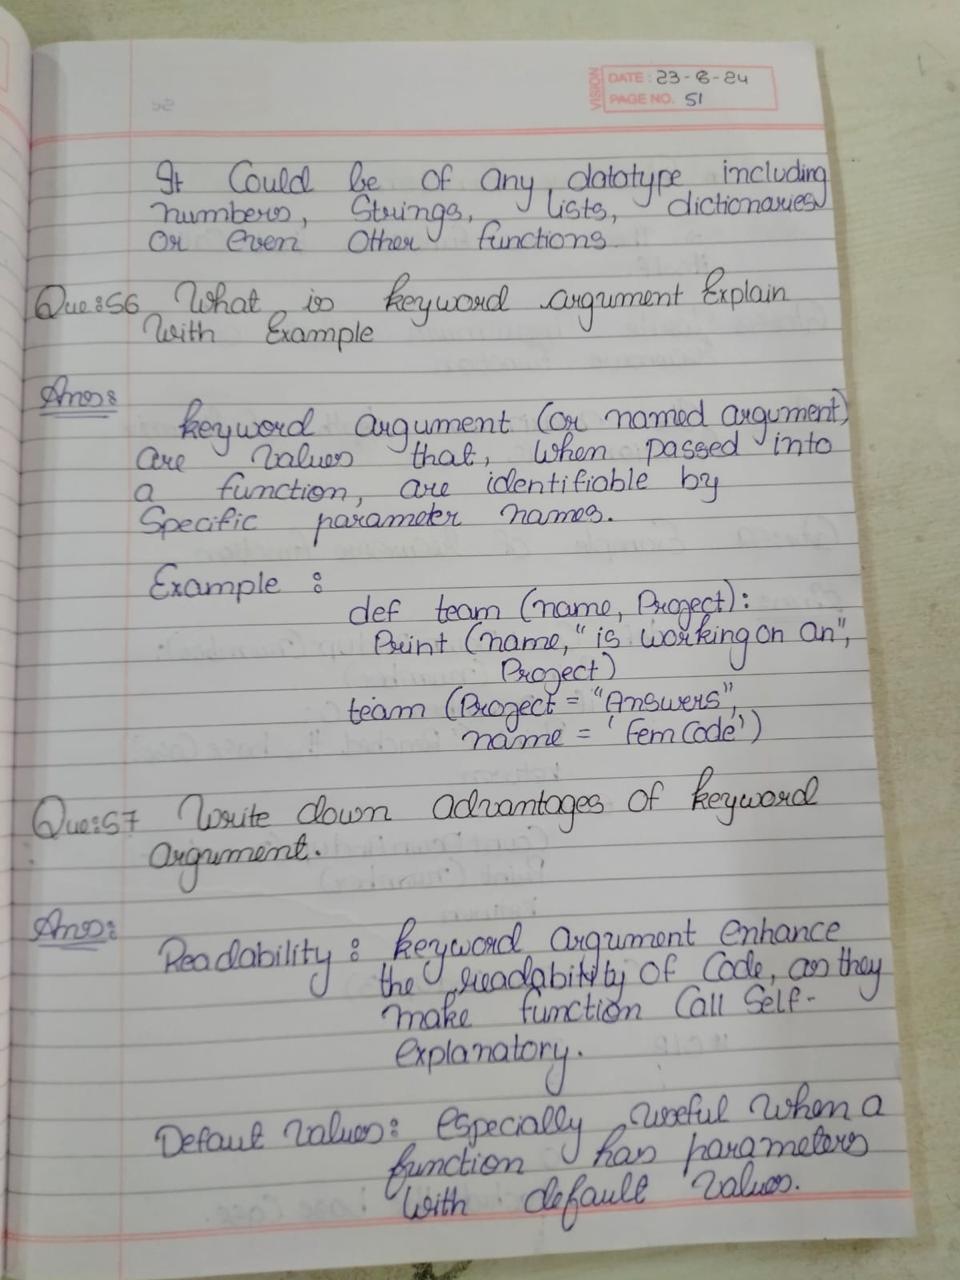 VISION
DATE : 23-8-24
PAGE NO. 51
It Could be of any datatype including
numbers, Strings, lists, dictionaries
or even other functions
Que:56 What is keyword argument Explain
With Example
Ans:
keyword argument (or named argument)
are values that, when passed into
a function, are identifiable by
Specific parameter names.
Example :
def team (name, Project):
Print (name, " is working on an",
Project)
team (Project = "Answers",
name = 'FemCode')
Que:57 Write down advantages of keyword
argument.
Ans:
Readability : keyword argument enhance
the readability of Code, as they
make function Call Self-
explanatory.
Defaut values: Especially useful when a
function has parameters
with default values.